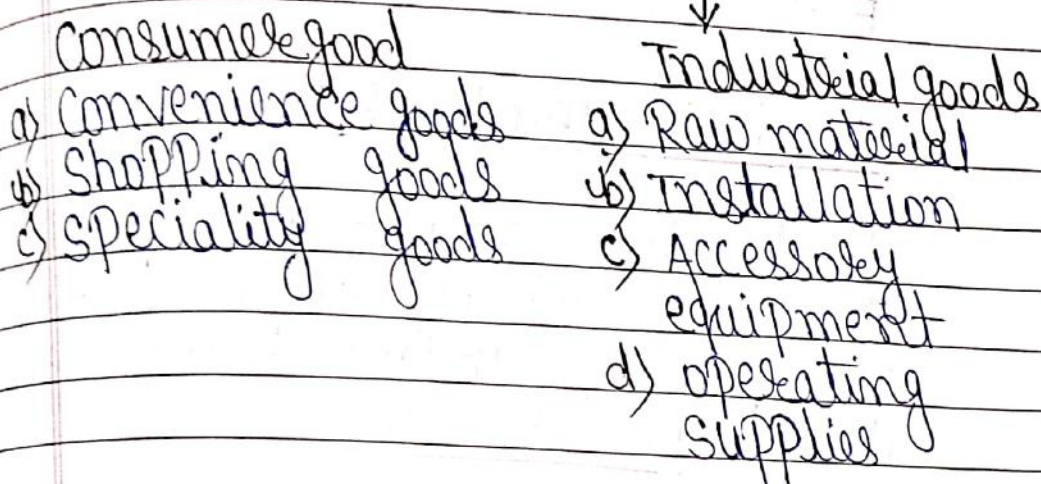 Consumer good
a) Convenience goods
b) Shopping goods
c) Speciality goods
Industrial goods
a) Raw material
b) Installation
c) Accessory
equipment
d) operating
supplies